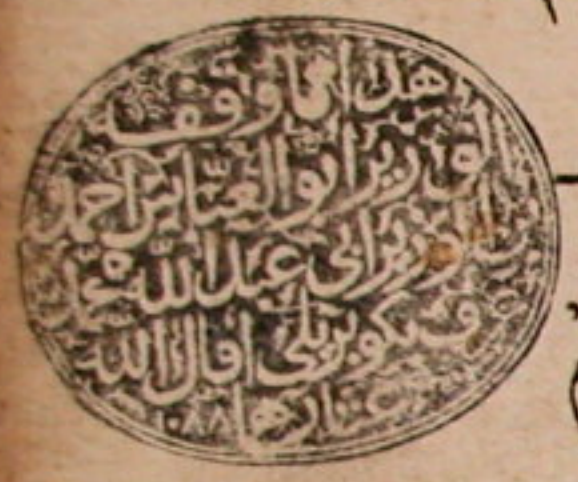 هذا مما وقفه
الوزير ابو العبّاس احمد
بن الوزير ابى عبد اللّه محمّد
عرف بكوبريلى اقال اللّه
عثارهما ١٠٨٨